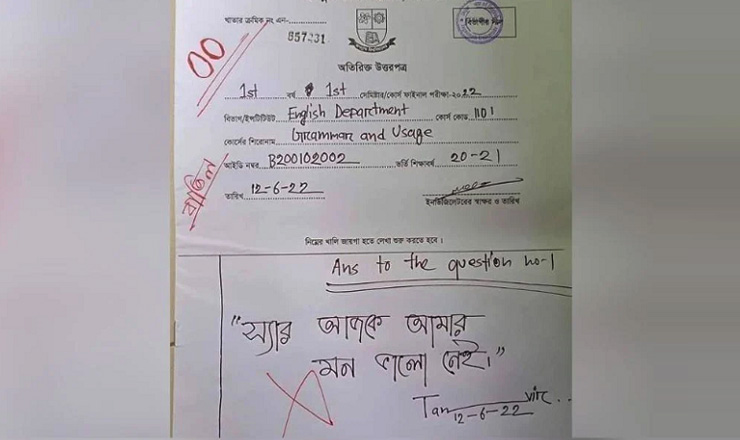 খাতার ক্রমিক নং এন-
857231
00
বিভাগীয় সিল
অতিরিক্ত উত্তরপত্র
1st বর্ষ 1st সেমিস্টার/কোর্স ফাইনাল পরীক্ষা-২০22
বিভাগ/ইন্সটিটিউট English Department কোর্স কোড 1101
কোর্সের শিরোনাম Grammar and Usage
আইডি নম্বর B200102002 ভর্তি শিক্ষাবর্ষ 20-21
বাতিল
তারিখ 12-6-22
ইনভিজিলেটরের স্বাক্ষর ও তারিখ
নিম্নের খালি জায়গা হতে লেখা শুরু করতে হবে।
Ans to the question no-1
"স্যার আজকে আমার
মন ভালো নেই।"
Tan vir..
12-6-22